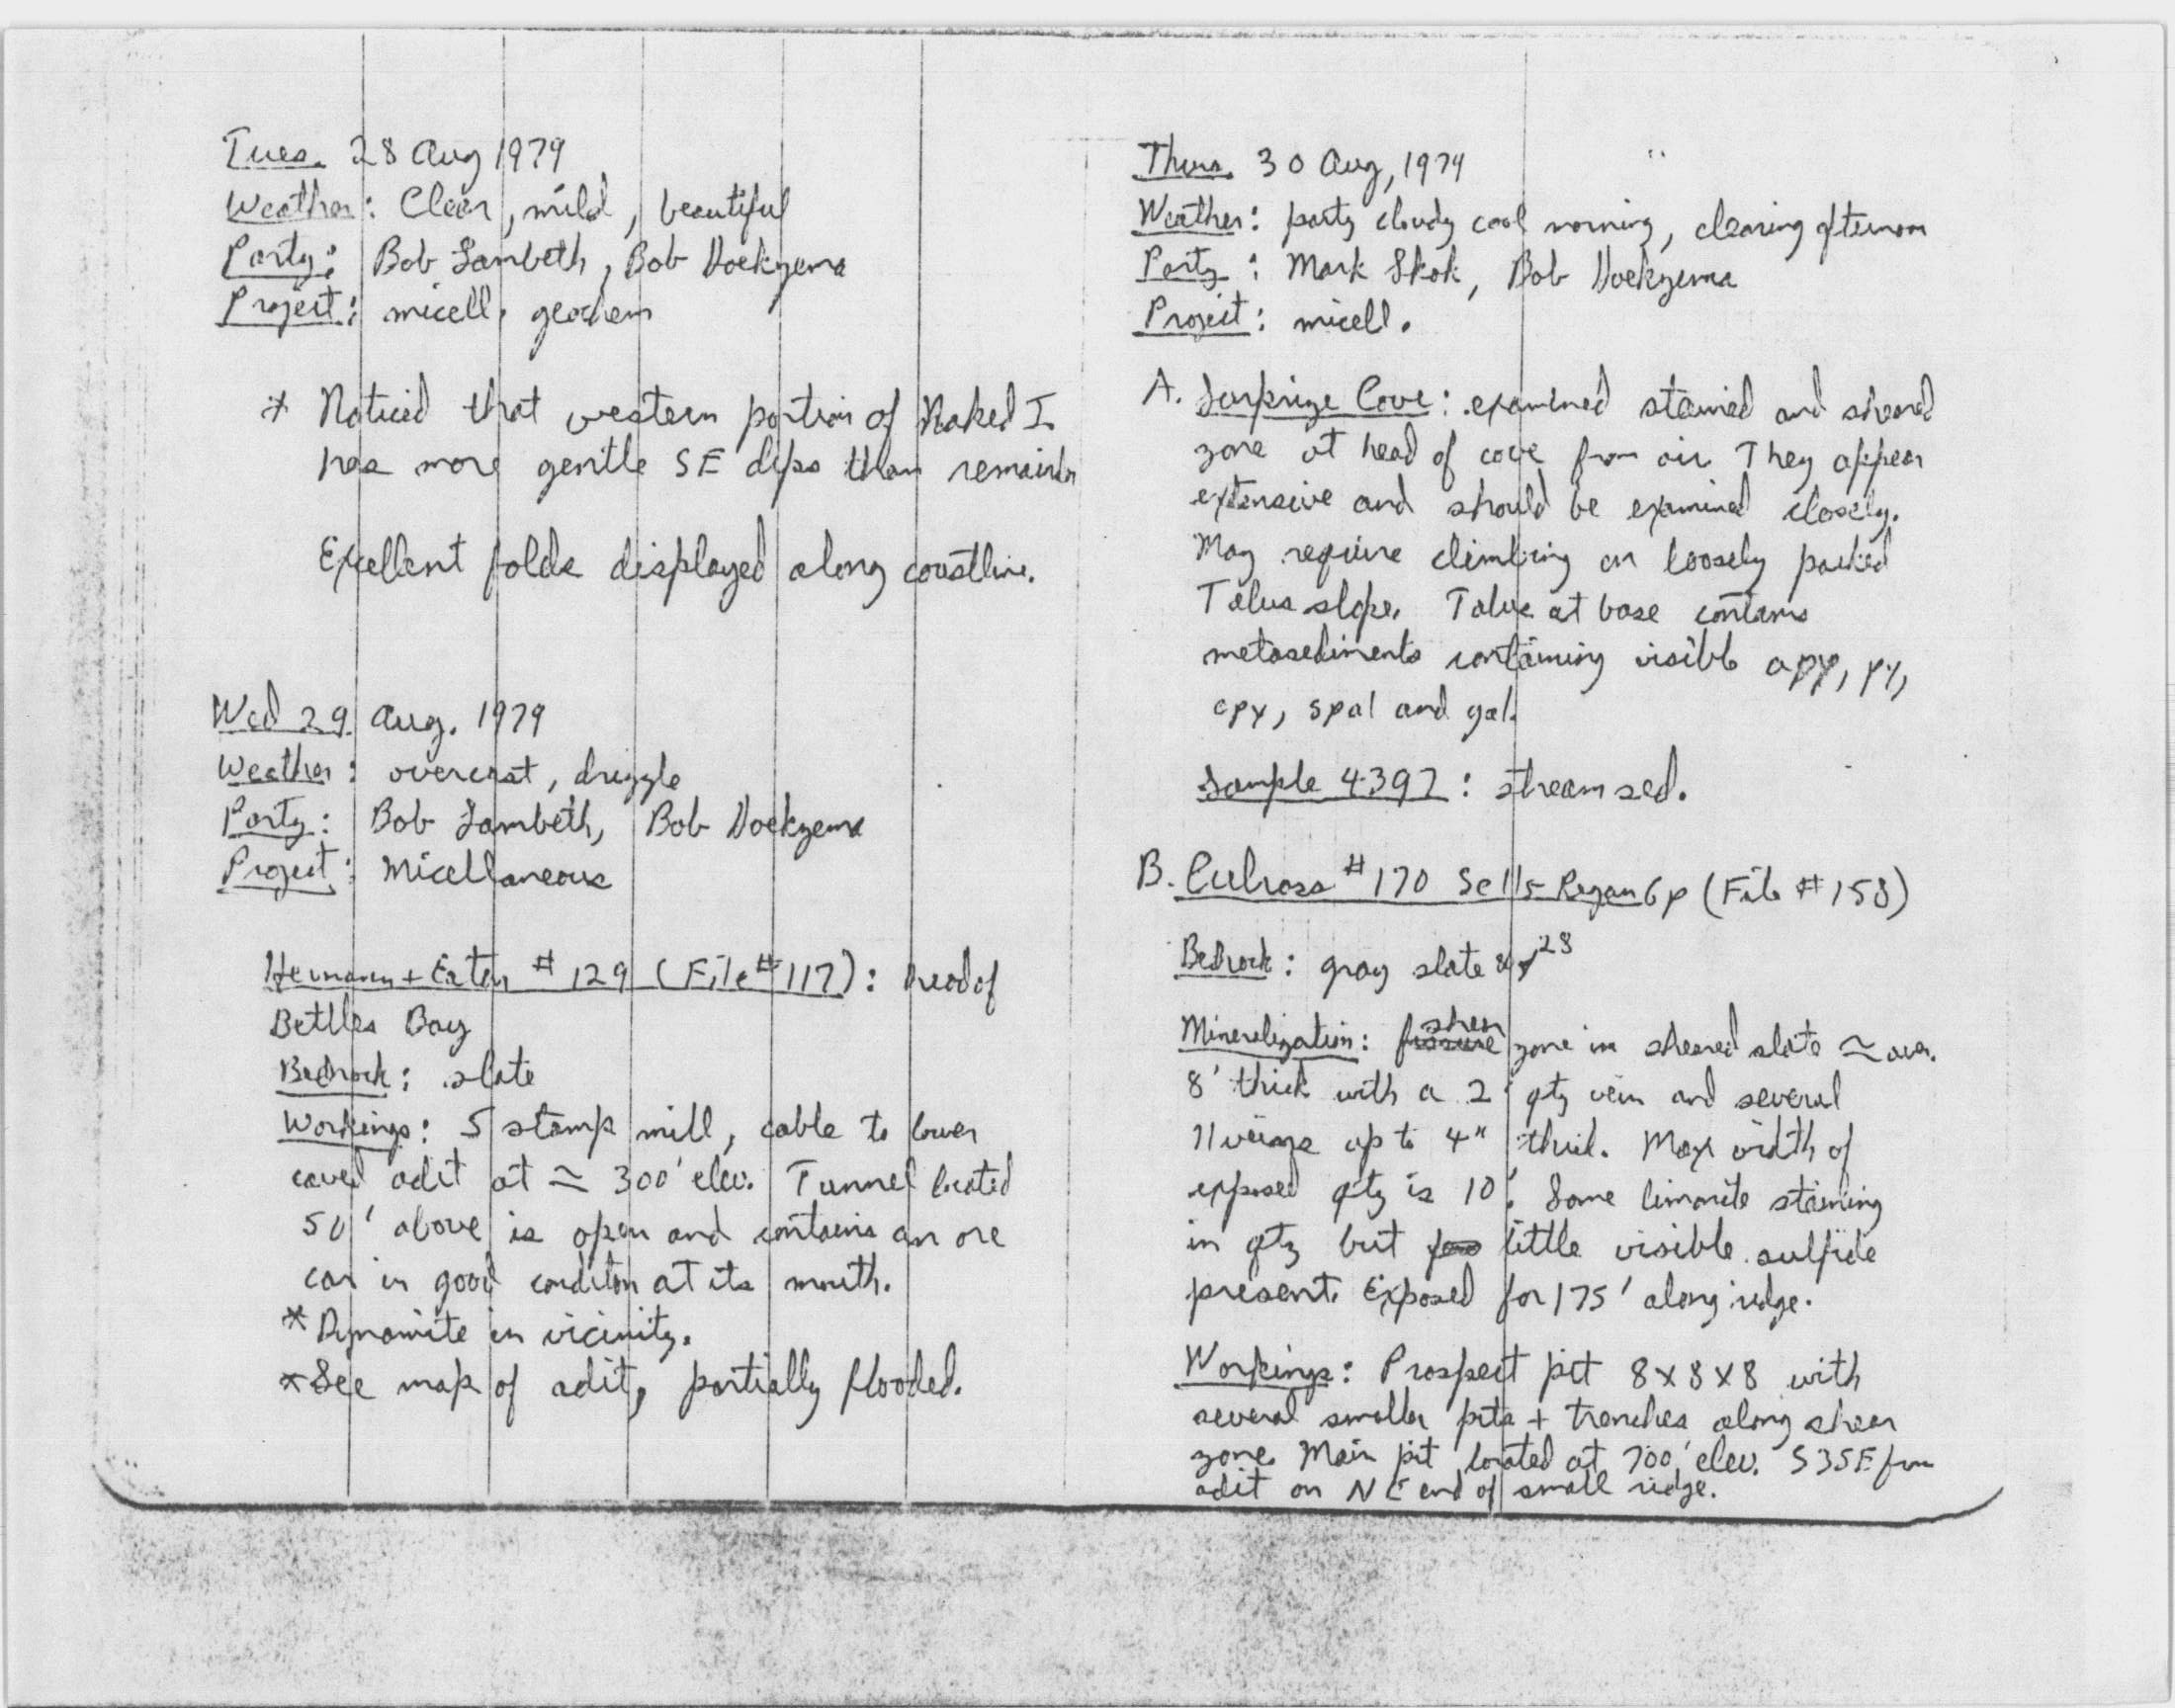 Tues. 28 Aug 1979
Weather: Clear, mild, beautiful
Party: Bob Lambeth, Bob Hoekzema
Project: micell. geochem
* Noticed that western portion of Naked I.
has more gentle SE dips than remainder
Excellent folds displayed along coastline.
Wed 29 Aug. 1979
Weather: overcast, drizzle
Party: Bob Lambeth, Bob Hoekzema
Project: Micellaneous
Hermann + Eaton # 129 (File # 117): head of
Bettles Bay
Bedrock: slate
Workings: 5 stamp mill, cable to lower
caved adit at ≃ 300' elev. Tunnel located
50' above is open and contains an ore
car in good conditon at its mouth.
* Dynamite in vicinity.
* See map of adit, partially flooded.
Thurs. 30 Aug, 1979
Weather: party cloudy cool morning, clearing afternoon
Party: Mark Skok, Bob Hoekzema
Project: micell.
A. Surprize Cove: examined stained and sheared
zone at head of cove from air. They appear
extensive and should be examined closely.
May require climbing on loosely packed
Talus slope. Talus at base contains
metasediments containing visible apy, py,
cpy, spal and gal.
Sample 4397: stream sed.
B. Culross # 170 Sells-Regan Gp (File # 158)
Bedrock: gray slate 28
Mineralization: fissure shear zone in sheared slate ≃ ave.
8' thick with a 2' qtz vein and several
11 veins up to 4" thick. Max width of
exposed qtz is 10'. Some limonite staining
in qtz but little visible sulfide
present. Exposed for 175' along ridge.
Workings: Prospect pit 8 x 8 x 8 with
several smaller pits + trenches along shear
zone. Main pit located at 700' elev. S35E from
adit on NE end of small ridge.